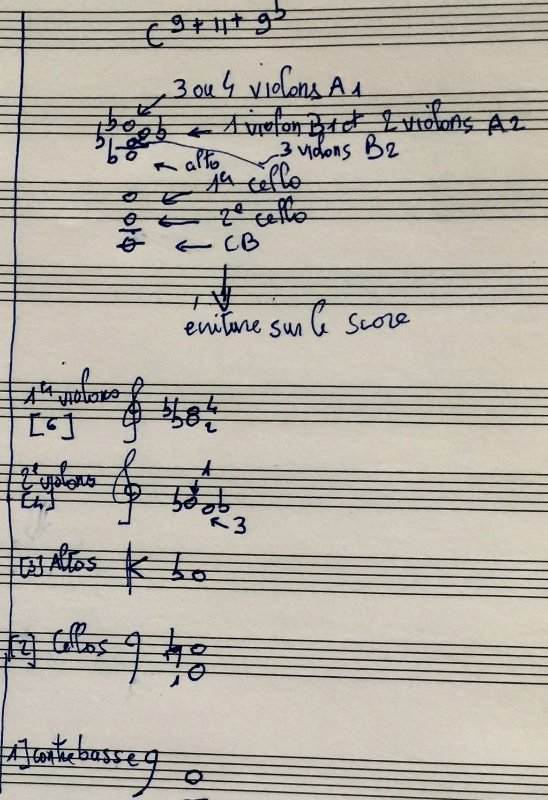 C 9+ 11+ 9b
3 ou 4 violons A1
1 violon B1 et 2 violons A2
3 violons B2
alto
1er cello
2e cello
CB
écriture sur le score
1er violons
[6]
4
2
2e violons
[4]
1
3
[3] Altos
[2] Cellos
1
1] contrebasse